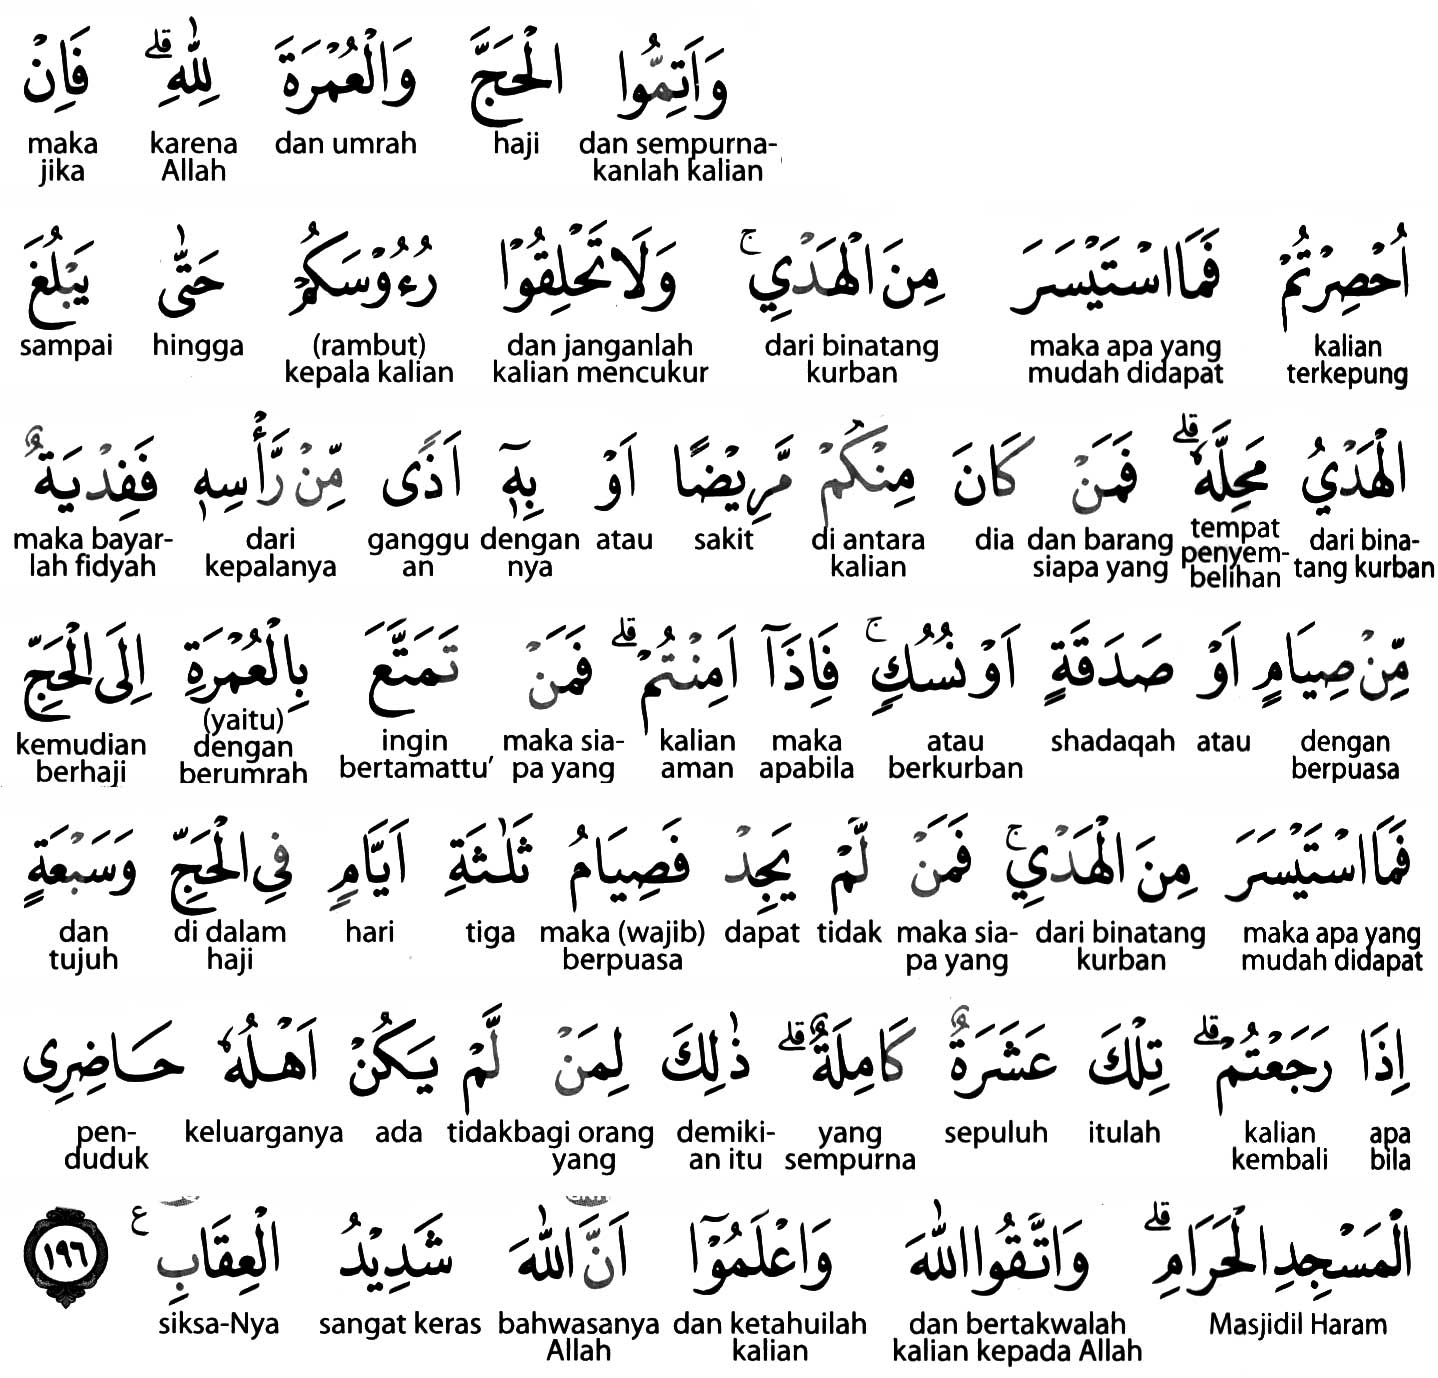 وَاَتِمُّوا الْحَجَّ وَالْعُمْرَةَ لِلّٰهِ ۗ فَاِنْ
dan sempurna- haji dan umrah karena maka
kanlah kalian Allah jika
اُحْصِرْتُمْ فَمَا اسْتَيْسَرَ مِنَ الْهَدْيِ ۚ وَلَا تَحْلِقُوْا رُءُوْسَكُمْ حَتّٰى يَبْلُغَ
kalian maka apa yang dari binatang dan janganlah (rambut) hingga sampai
terkepung mudah didapat kurban kalian mencukur kepala kalian
الْهَدْيُ مَحِلَّهٗ ۗ فَمَنْ كَانَ مِنْكُمْ مَّرِيْضًا اَوْ بِهٖٓ اَذًى مِّنْ رَّأْسِهٖ فَفِدْيَةٌ
dari bina- tempat dan barang dia di antara sakit atau dengan ganggu dari maka bayar-
tang kurban penyem- siapa yang kalian nya an kepalanya lah fidyah
belihan
مِّنْ صِيَامٍ اَوْ صَدَقَةٍ اَوْ نُسُكٍ ۚ فَاِذَآ اَمِنْتُمْ ۗ فَمَنْ تَمَتَّعَ بِالْعُمْرَةِ اِلَى الْحَجِّ
dengan atau shadaqah atau maka kalian maka sia- ingin (yaitu) kemudian
berpuasa berkurban apabila aman pa yang bertamattu’ dengan berhaji
berumrah
فَمَا اسْتَيْسَرَ مِنَ الْهَدْيِ ۚ فَمَنْ لَّمْ يَجِدْ فَصِيَامُ ثَلٰثَةِ اَيَّامٍ فِى الْحَجِّ وَسَبْعَةٍ
maka apa yang dari binatang maka sia- tidak dapat maka (wajib) tiga hari di dalam dan
mudah didapat kurban pa yang berpuasa haji tujuh
اِذَا رَجَعْتُمْ ۗ تِلْكَ عَشَرَةٌ كَامِلَةٌ ۗ ذٰلِكَ لِمَنْ لَّمْ يَكُنْ اَهْلُهٗ حَاضِرِى
apa kalian itulah sepuluh yang demiki- bagi orang tidak ada keluarganya pen-
bila kembali sempurna an itu yang duduk
الْمَسْجِدِ الْحَرَامِ ۗ وَاتَّقُوا اللّٰهَ وَاعْلَمُوْٓا اَنَّ اللّٰهَ شَدِيْدُ الْعِقَابِ ع ١٩٦
Masjidil Haram dan bertakwalah dan ketahuilah bahwasanya sangat keras siksa-Nya
kalian kepada Allah kalian Allah